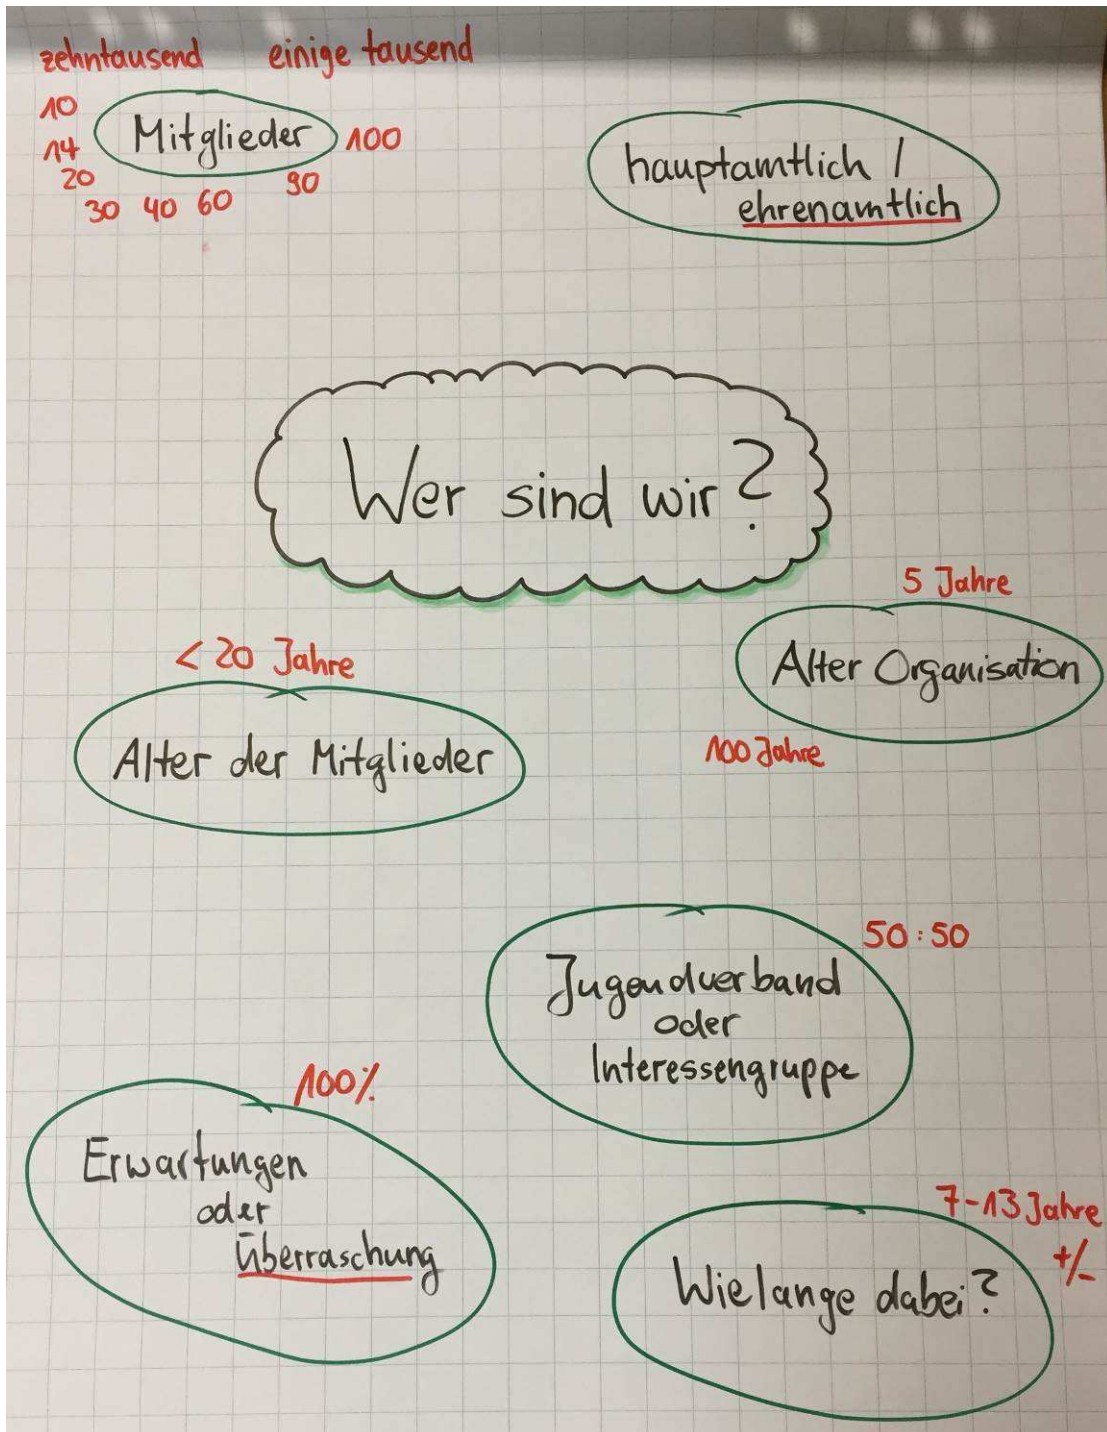 zehntausend einige tausend
10
Mitglieder 100
14
20
30 40 60 90
hauptamtlich /
ehrenamtlich
Wer sind wir?
5 Jahre
Alter Organisation
100 Jahre
< 20 Jahre
Alter der Mitglieder
50:50
Jugendverband
oder
Interessengruppe
100%
Erwartungen
oder
Überraschung
7-13 Jahre
+/-
Wie lange dabei?